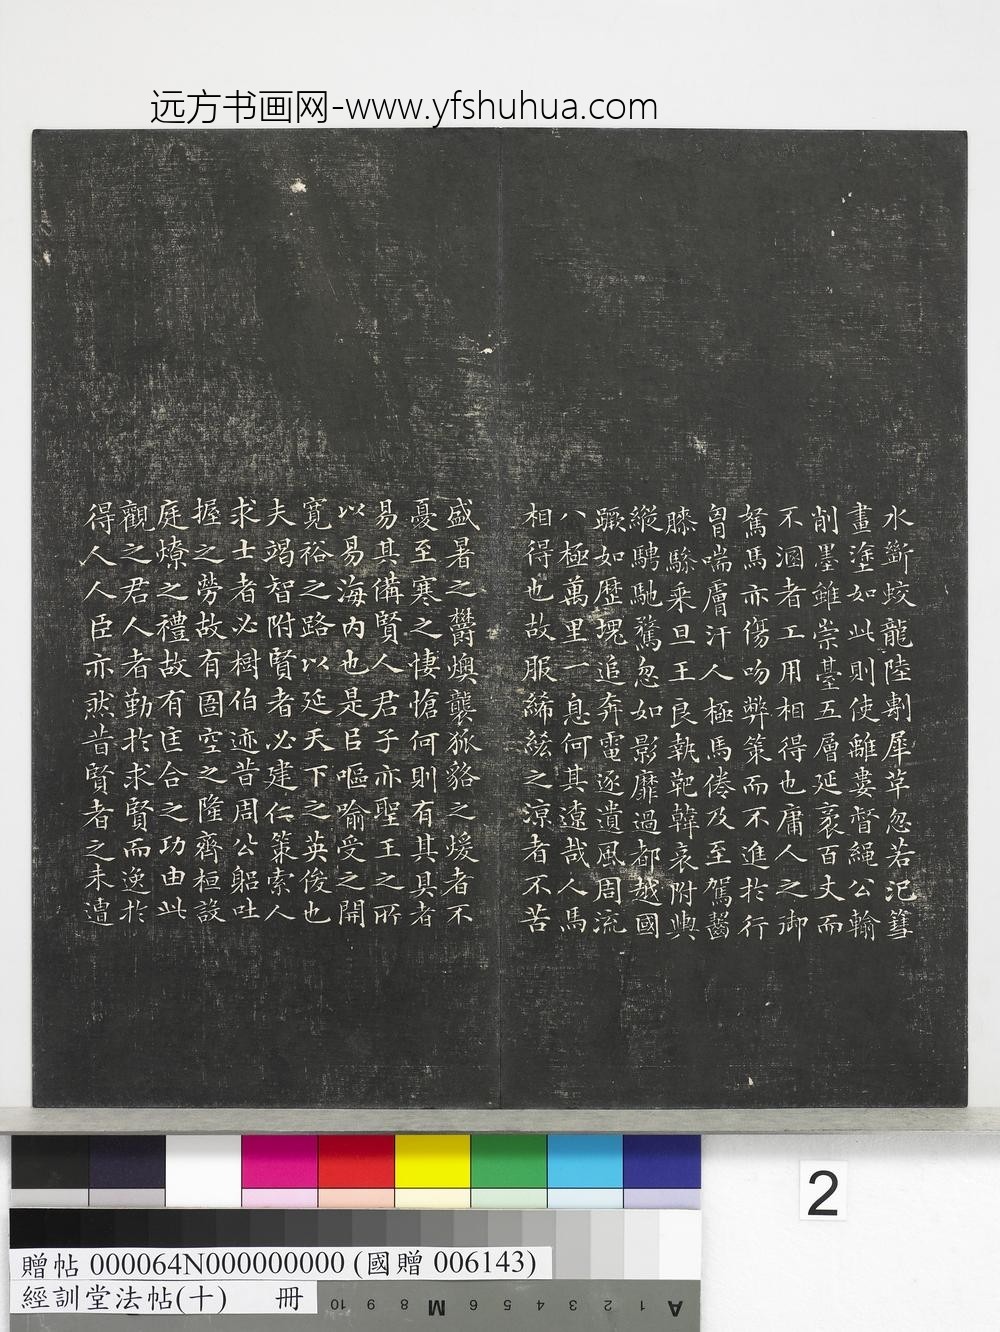 远方书画网-www.yfshuhua.com
水斷蛟龍陸剸犀革忽若汜篲
畫塗如此則使離婁督繩公輸
削墨雖崇臺五層延袤百丈而
不溷者工用相得也庸人之御
駑馬亦傷吻弊策而不進於行
胷喘膚汗人極馬倦及至駕齧
膝驂乗旦王良執靶韓哀附輿
縱騁馳騖忽如影靡過都越國
蹶如歷塊追奔電逐遺風周流
八極萬里一息何其遼哉人馬
相得也故服絺綌之涼者不苦
盛暑之欝燠襲狐貉之煖者不
憂至寒之悽愴何則有其具者
易其備賢人君子亦聖王之所
以易海內也是㠯嘔喻受之開
寬裕之路以延天下之英俊也
夫竭智附賢者必建仁策索人
求士者必樹伯迹昔周公躬吐
握之勞故有圄空之隆齊桓設
庭燎之禮故有匡合之功由此
觀之君人者勤於求賢而逸於
得人人臣亦然昔賢者之未遭
2
贈帖 000064N000000000 (國贈 006143)
經訓堂法帖(十) 冊
10 9 8 M 6 5 4 3 2 1 A